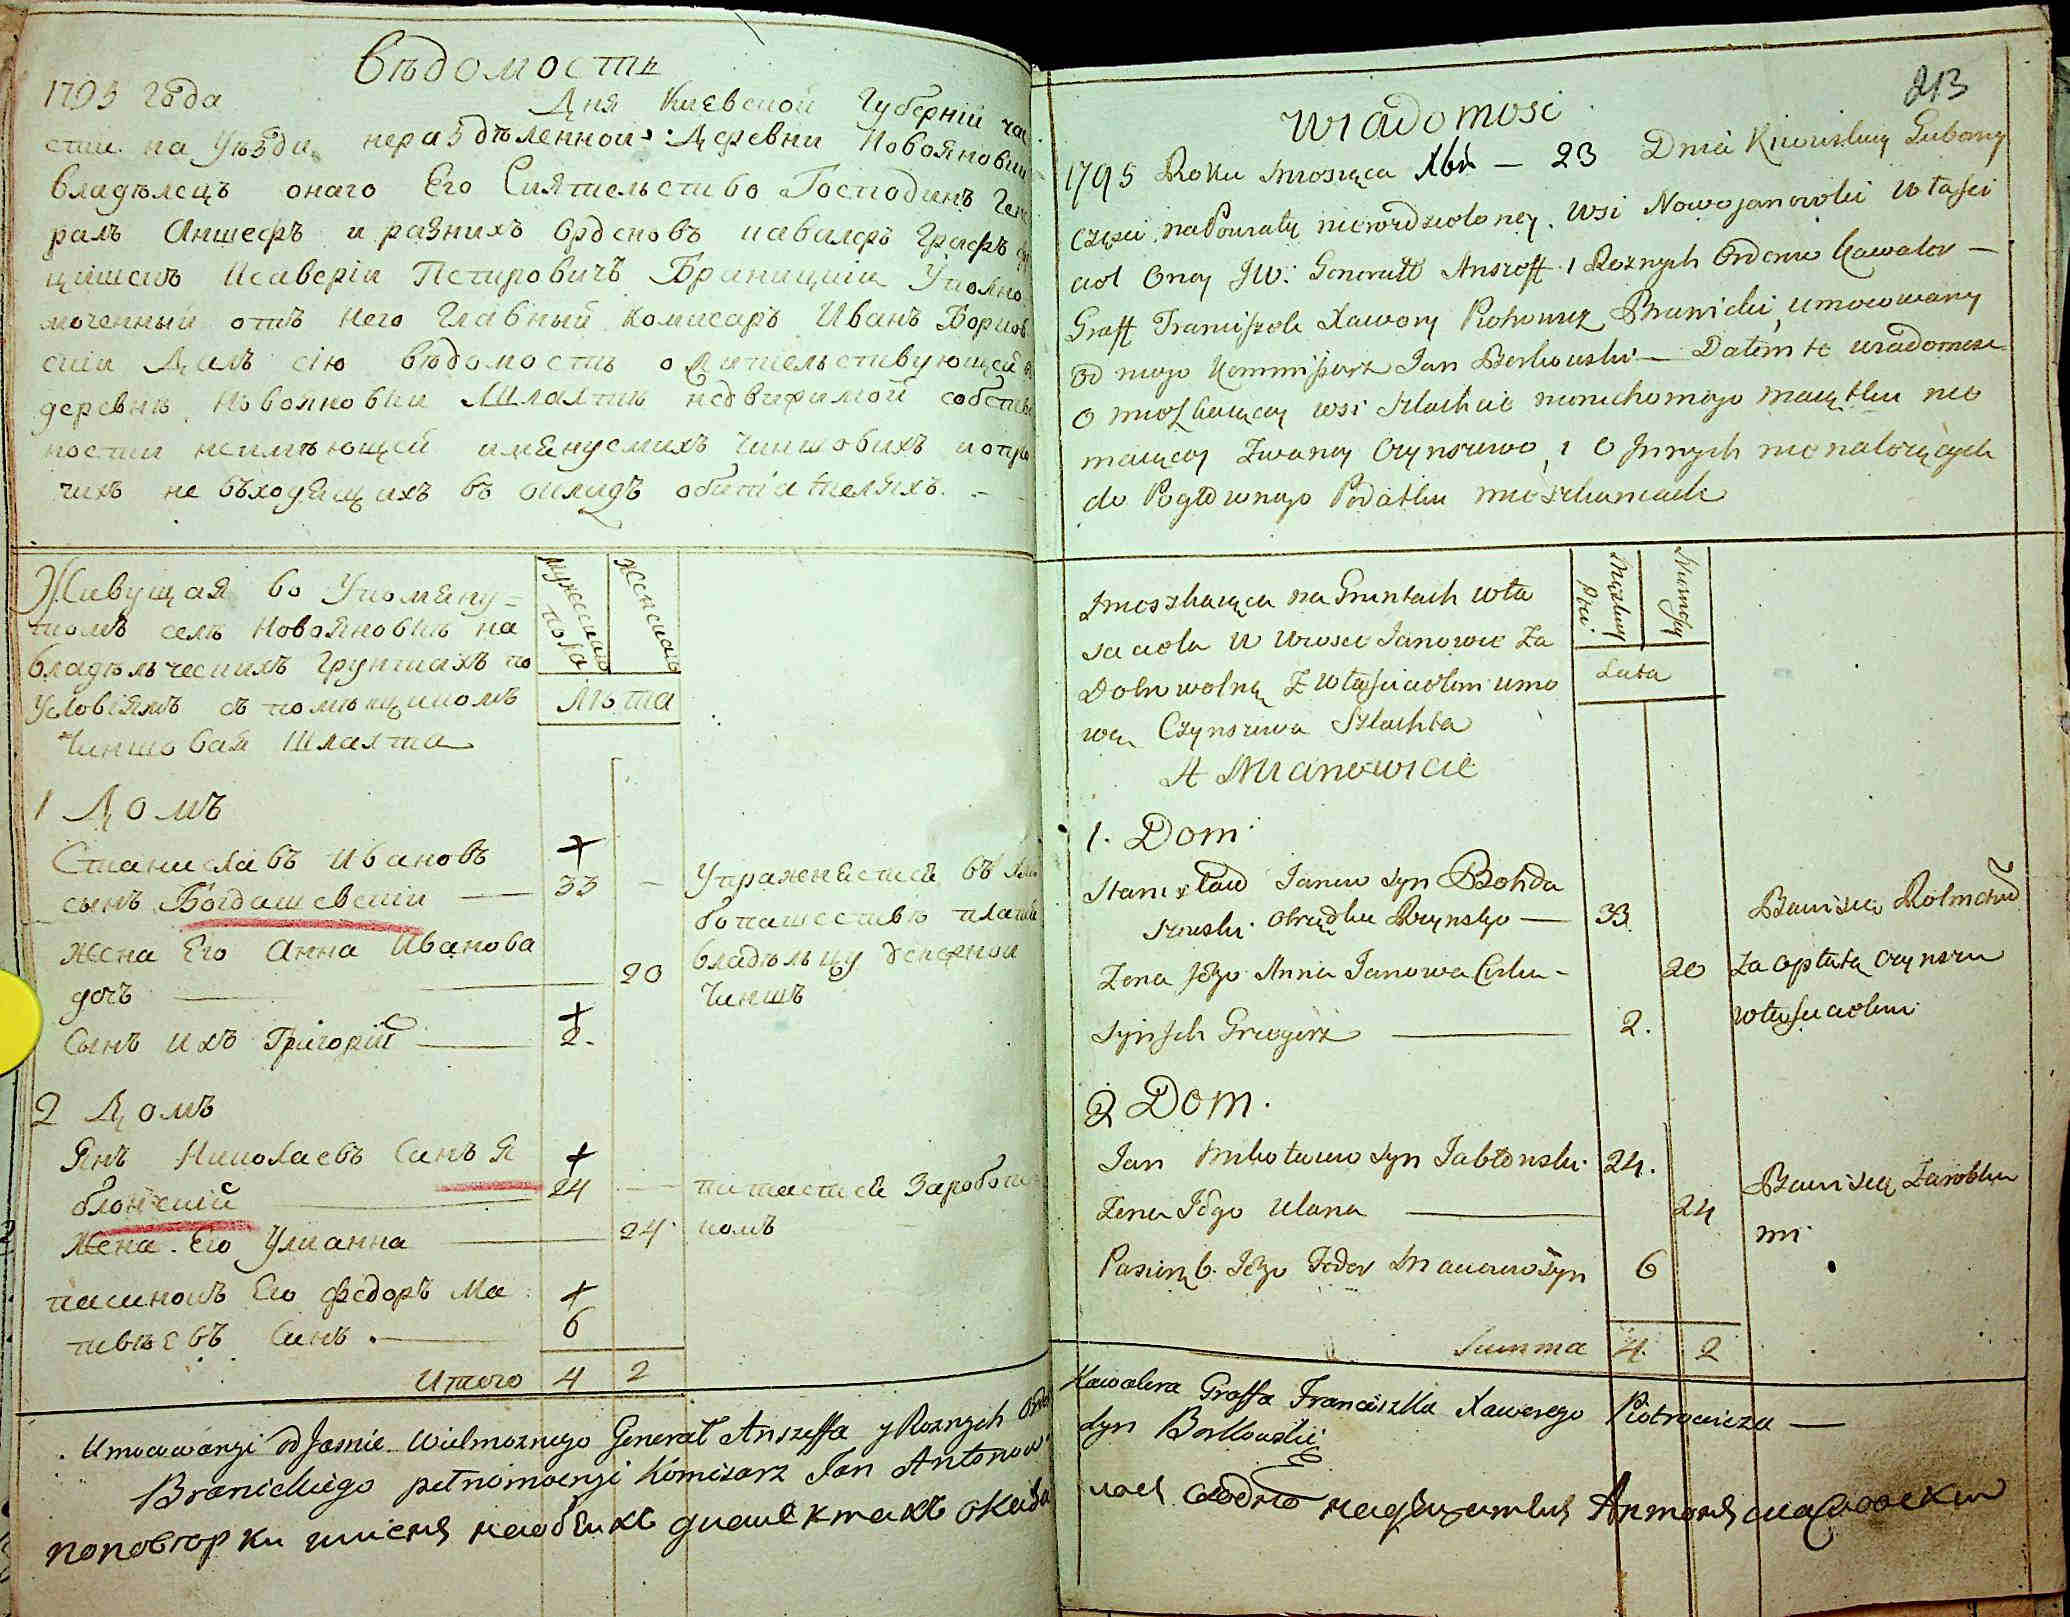 Вѣдомость
1795 года
Дня Киевской Губерніи ча
сти на Уѣзди нераздѣленной Деревни Новояновки
владѣлецъ онаго Его Сиятельство Господинъ Гене
ралъ Аншефъ и разнихъ Орденовъ кавалеръ Графъ
цишекъ Ксаверіи Петровичъ Браницкіи Уполно
моченный отъ него Главный Комисаръ Иванъ Борков
скіи Далъ сію вѣдомость о жительствующей в
деревнѣ Новояновки Шляхтѣ недвижимой собствен
ности неимѣющей имянуемихъ Чиншовихъ и о про
чихъ не въходящихъ въ окладъ обитателяхъ.
Живущая во Упомяну=
томъ селѣ Новояновкѣ на
владѣльческихъ Грунтахъ по
Условіямъ съ помѣщикомъ
Чиншовая Шляхта
мужеска пола
женска
Лѣта
1 Домъ
Станиславъ Ивановъ +
сынъ Богдашевскіи 33 — Упражняется въ хлѣ
бопашествѣ платя
жена Его Анна Иванова
дочь 20 владѣльцу денежной
Чиншъ
Сынъ ихъ Григорій + 2.
2 Домъ
Янъ Николаевъ Синъ Я +
блонскій 24 — питается Заработ
жена Его Улианна 24 комъ
пасинокъ Его Федоръ Ма +
твѣевъ Синъ. 6
Итого 4 2
Umocowanyi od Jasnie Wielmoznego Generał Anszeffa y Roznych Orde
Branickiego pełnomocnyi Komisarz Jan Antonow
213
Wiadomosc
1795 Roku Miesiąca Xbr — 23 Dnia Kiiowskiey Gubernij
Części na Powiaty nierozdzieloney. Wsi Nowojanowki właści
ciel Oney JW: Generał Ansceff i Roznych Orderow Kawaler —
Graff Franciszek Xawery Piotrowicz Branicki, umocowany
Od niego Kommissarz Jan Borkowski — Dałem tę wiadomosc
o mieszkaiącey wsi szlachcie nieruchomego maiątku nie
maiącey Zwaney Czynszowe, i o Jnnych nienależących
do Pogłownego Podatku mieszkancach
Zmieszkaiąca na Gruntach wła
sciciela w Wiosce Janowce Za
Dobrowolną Z właścicielem umo
wą Czynszowa Szlachta
A Mianowicie
Męzkiey Płci.
Żenskiey
Lata
1. Dom
Stanisław Janow Syn Bohda
szewski. obrządku Rzynskego — 33. Bawi się Rolnictw
Żena Jego Anna Janowa Corka — 20 Za opłatą czynszu
właścicielowi
Syn Jch Grzegorz 2.
2 Dom.
Jan Mikołaiow Syn Jabłonski. 24. Bawi się Zarobka
Żena Jego Ulana 24 mi
Pasierzb. Jego Fedor Maciow Syn 6
Summa 4. 2
Kawalera Graffa Franciszka Xawerego Piotrowicza —
Syn Borkowski